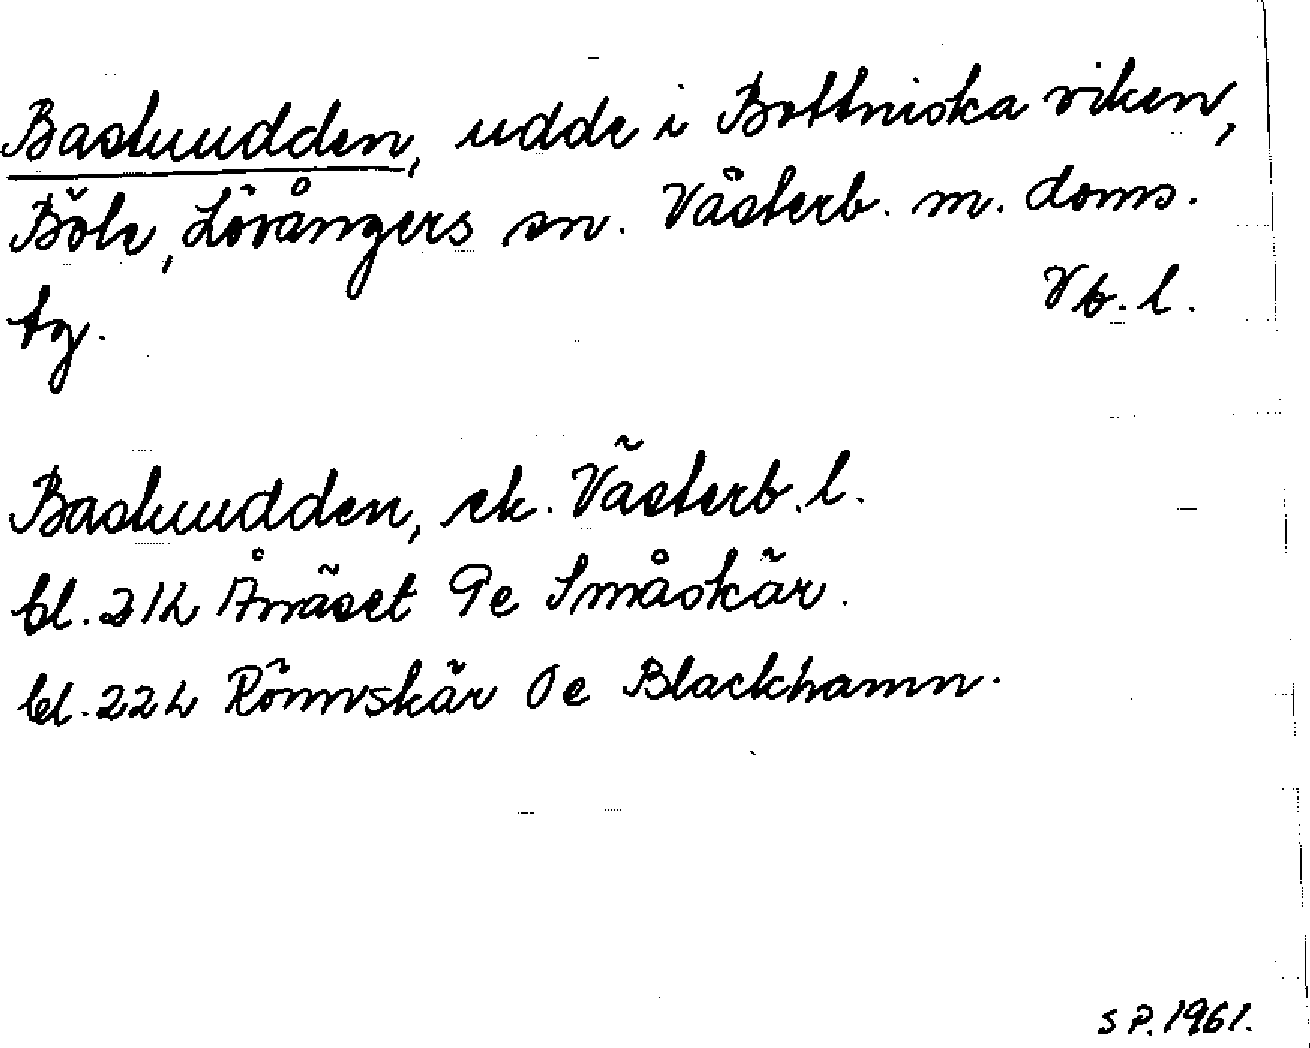 Bastuudden, udde i Bottniska viken,
Böle, Lövångers sn. Västerb. m. doms.
tg. Vb. l.
Bastuudden, ek. Västerb. l.
bl. 21L Ånäset 9e Småskär.
bl. 22L Rönnskär 0e Blackhamn.
S P. 1961.